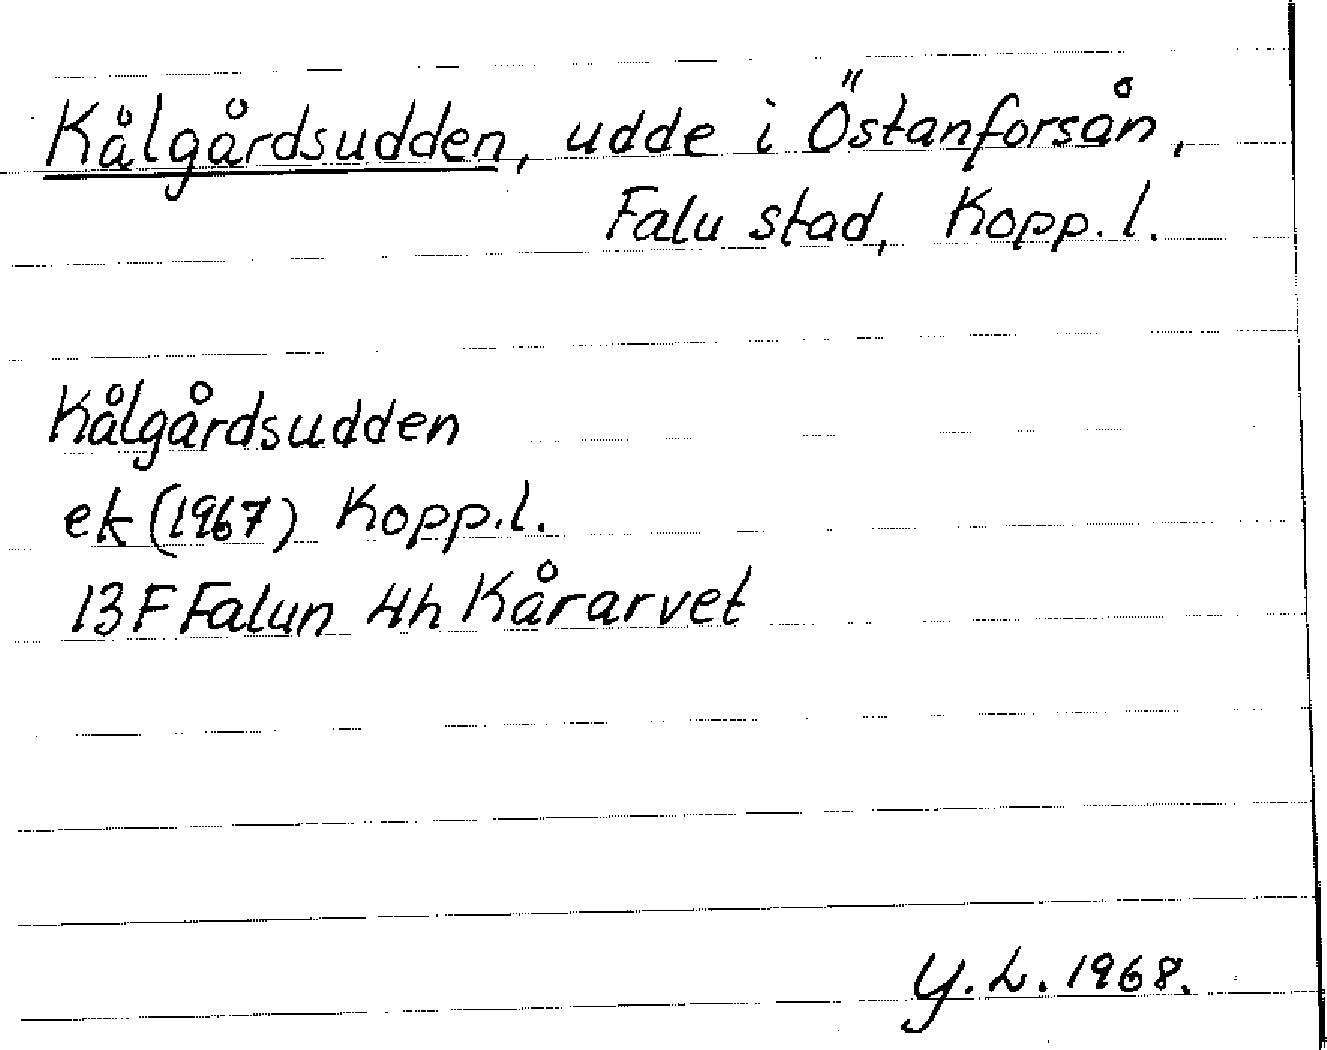 Kålgårdsudden, udde i Östanforsån,
Falu stad, Kopp. l.
Kålgårdsudden
ek (1967) Kopp.l.
13F Falun 4h Kårarvet
Y.L. 1968.